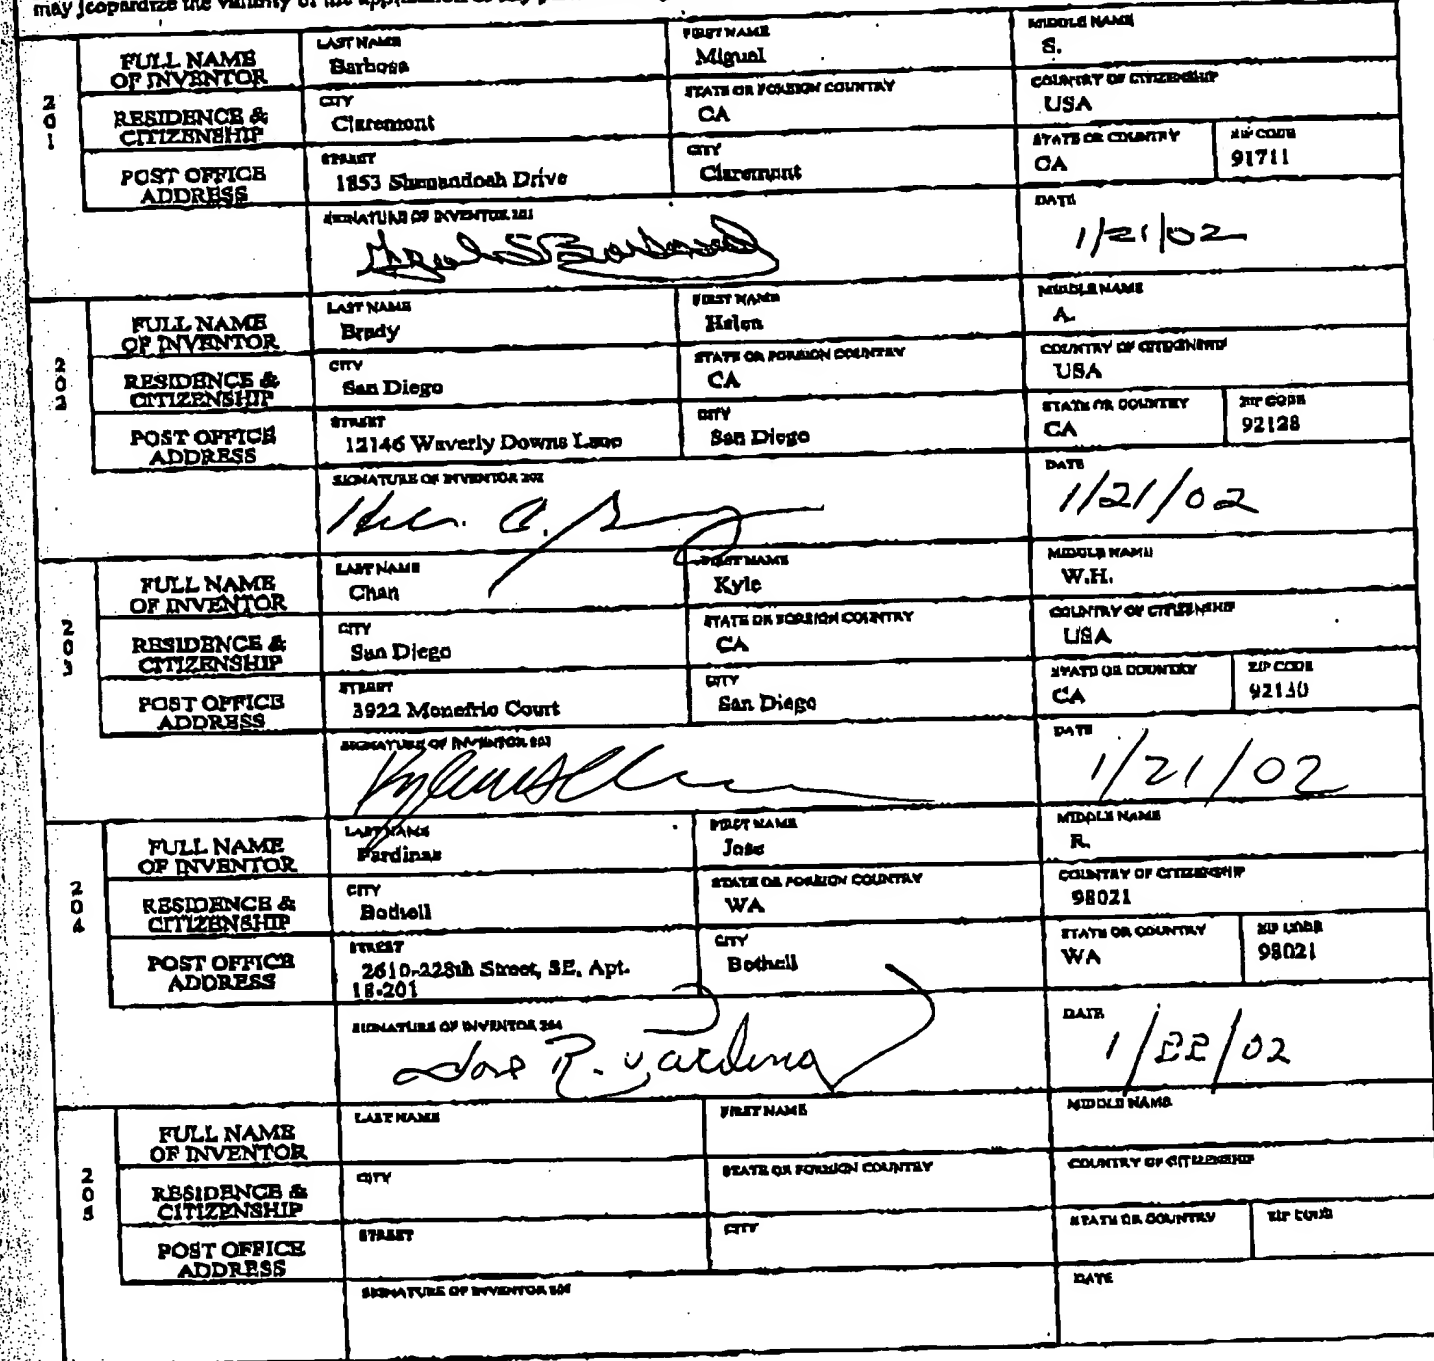 may jeopardize the validity of the application or any
201
FULL NAME OF INVENTOR
LAST NAME
Barbosa
FIRST NAME
Miguel
MIDDLE NAME
S.
RESIDENCE & CITIZENSHIP
CITY
Claremont
STATE OR FOREIGN COUNTRY
CA
COUNTRY OF CITIZENSHIP
USA
POST OFFICE ADDRESS
STREET
1853 Shenandoah Drive
CITY
Claremont
STATE OR COUNTRY
CA
ZIP CODE
91711
SIGNATURE OF INVENTOR 201
DATE
1/21/02
202
FULL NAME OF INVENTOR
LAST NAME
Brady
FIRST NAME
Helen
MIDDLE NAME
A.
RESIDENCE & CITIZENSHIP
CITY
San Diego
STATE OR FOREIGN COUNTRY
CA
COUNTRY OF CITIZENSHIP
USA
POST OFFICE ADDRESS
STREET
12146 Waverly Downs Lane
CITY
San Diego
STATE OR COUNTRY
CA
ZIP CODE
92128
SIGNATURE OF INVENTOR 202
DATE
1/21/02
203
FULL NAME OF INVENTOR
LAST NAME
Chan
FIRST NAME
Kyle
MIDDLE NAME
W.H.
RESIDENCE & CITIZENSHIP
CITY
San Diego
STATE OR FOREIGN COUNTRY
CA
COUNTRY OF CITIZENSHIP
USA
POST OFFICE ADDRESS
STREET
3922 Monefrio Court
CITY
San Diego
STATE OR COUNTRY
CA
ZIP CODE
92130
SIGNATURE OF INVENTOR 203
DATE
1/21/02
204
FULL NAME OF INVENTOR
LAST NAME
Fardinas
FIRST NAME
Jose
MIDDLE NAME
R.
RESIDENCE & CITIZENSHIP
CITY
Bothell
STATE OR FOREIGN COUNTRY
WA
COUNTRY OF CITIZENSHIP
98021
POST OFFICE ADDRESS
STREET
2610-228th Street, SE, Apt.
18-201
CITY
Bothell
STATE OR COUNTRY
WA
ZIP CODE
98021
SIGNATURE OF INVENTOR 204
Jose R. Fardinas
DATE
1/22/02
205
FULL NAME OF INVENTOR
LAST NAME
FIRST NAME
MIDDLE NAME
RESIDENCE & CITIZENSHIP
CITY
STATE OR FOREIGN COUNTRY
COUNTRY OF CITIZENSHIP
POST OFFICE ADDRESS
STREET
CITY
STATE OR COUNTRY
ZIP CODE
SIGNATURE OF INVENTOR 205
DATE